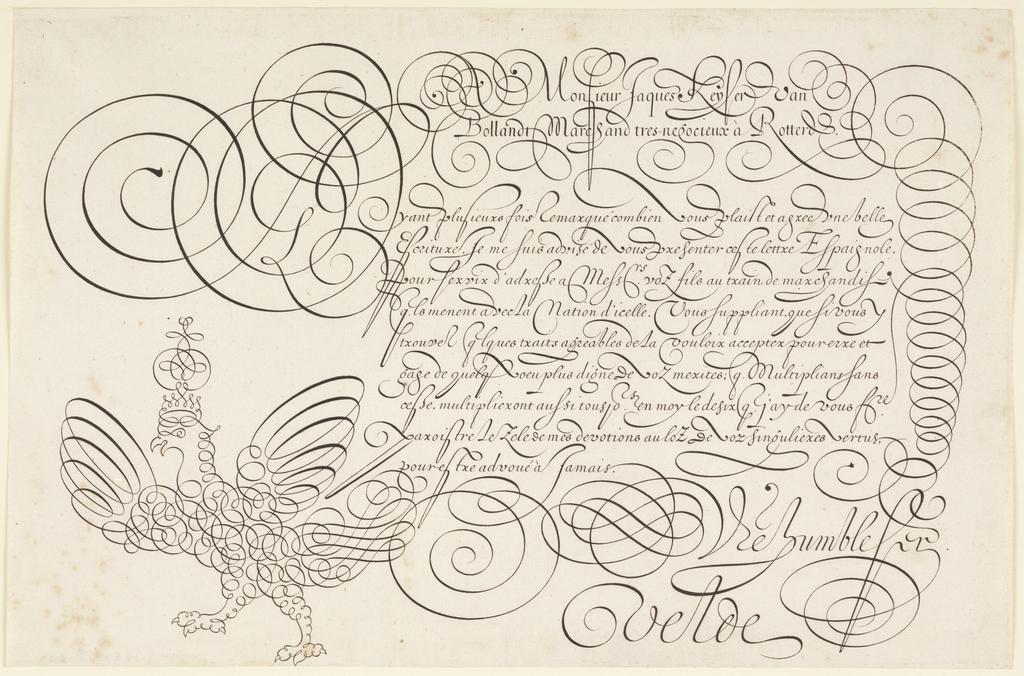 A Monsieur Jaques Keyser van
Bollandt Marchand tres-negocieux à Rotterd.
Ayant plusieurs fois remarqué combien vous plaist et agree une belle
Escriture. Je me suis advisé de vous presenter ceste lettre Espaignole.
Pour servir d'adresse a Mess.rs voz fils au train de marchandise
q'ls menent avec la Nation d'icelle. Vous suppliant, que si vous y
trouvez q'lques traits agreables de la vouloir accepter pour erre et
gage de quelq. voeu plus digne de voz merites; q. Multiplians sans
cesse. multiplieront aussi tousjo.rs en moy le desir q. j'ay de vous f.re
paroistre le zele de mes devotions au loz de voz singulieres vertus,
pour estre advoué à Jamais.
Vre humble Ser
Velde